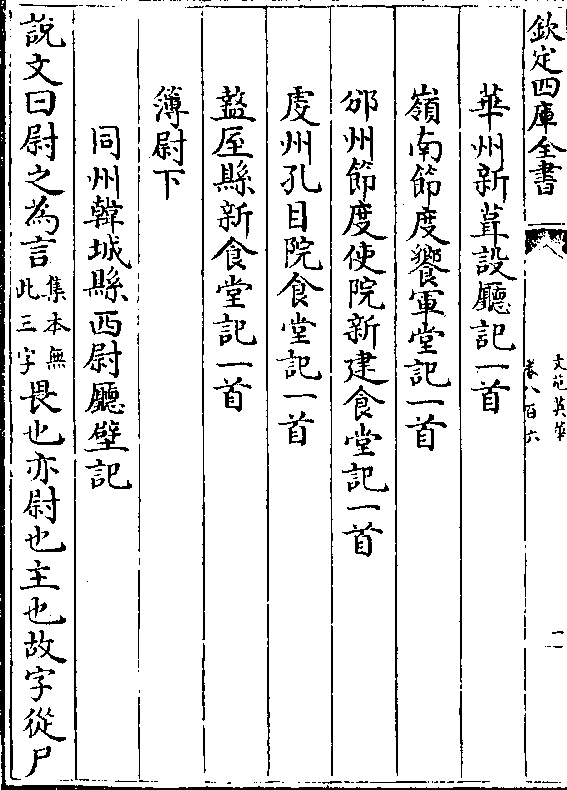 欽定四庫全書
文苑英華
卷八百六
二
華州新葺設廳記一首
嶺南節度饗軍堂記一首
邠州節度使院新建食堂記一首
虔州孔目院食堂記一首
盩厔縣新食堂記一首
簿尉下
同州韓城縣西尉廳壁記
說文曰尉之為言集本無此三字畏也亦尉也主也故字從尸